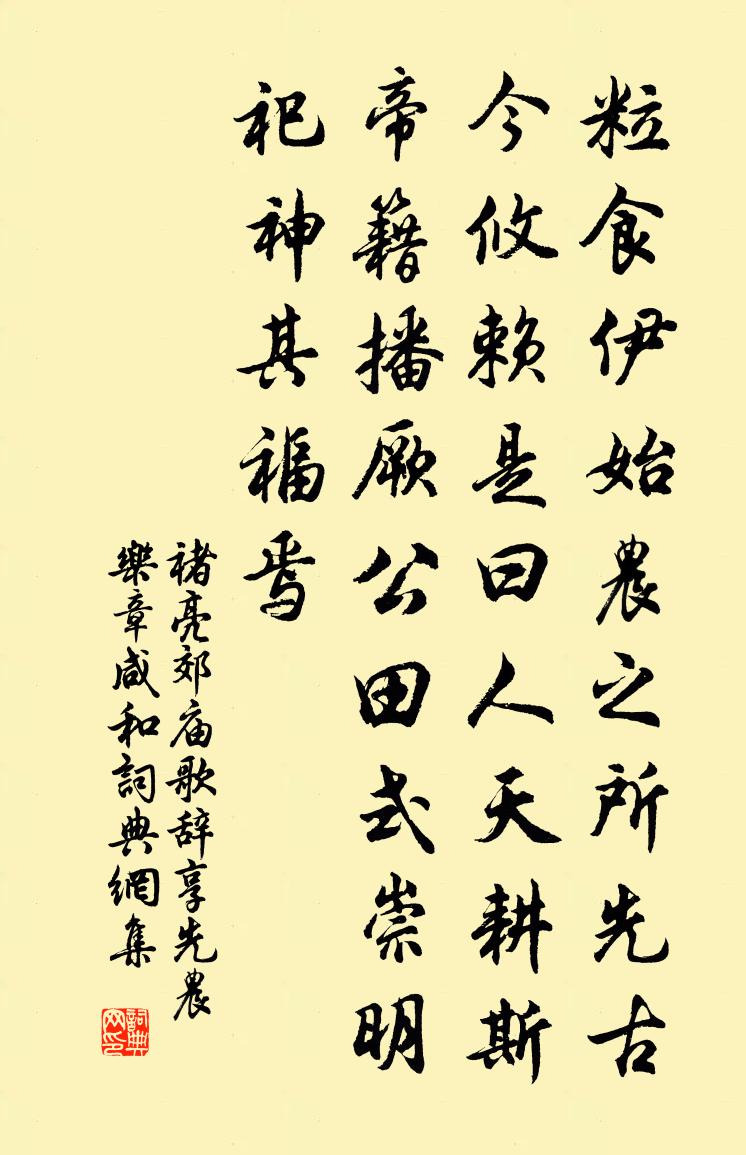 粒食伊始農之所先古
今攸赖是曰人天耕斯
帝籍播厥公田式崇明
祀神其福焉
褚亮郊庙歌辞享先農
樂章咸和詞典網集
詞典网印